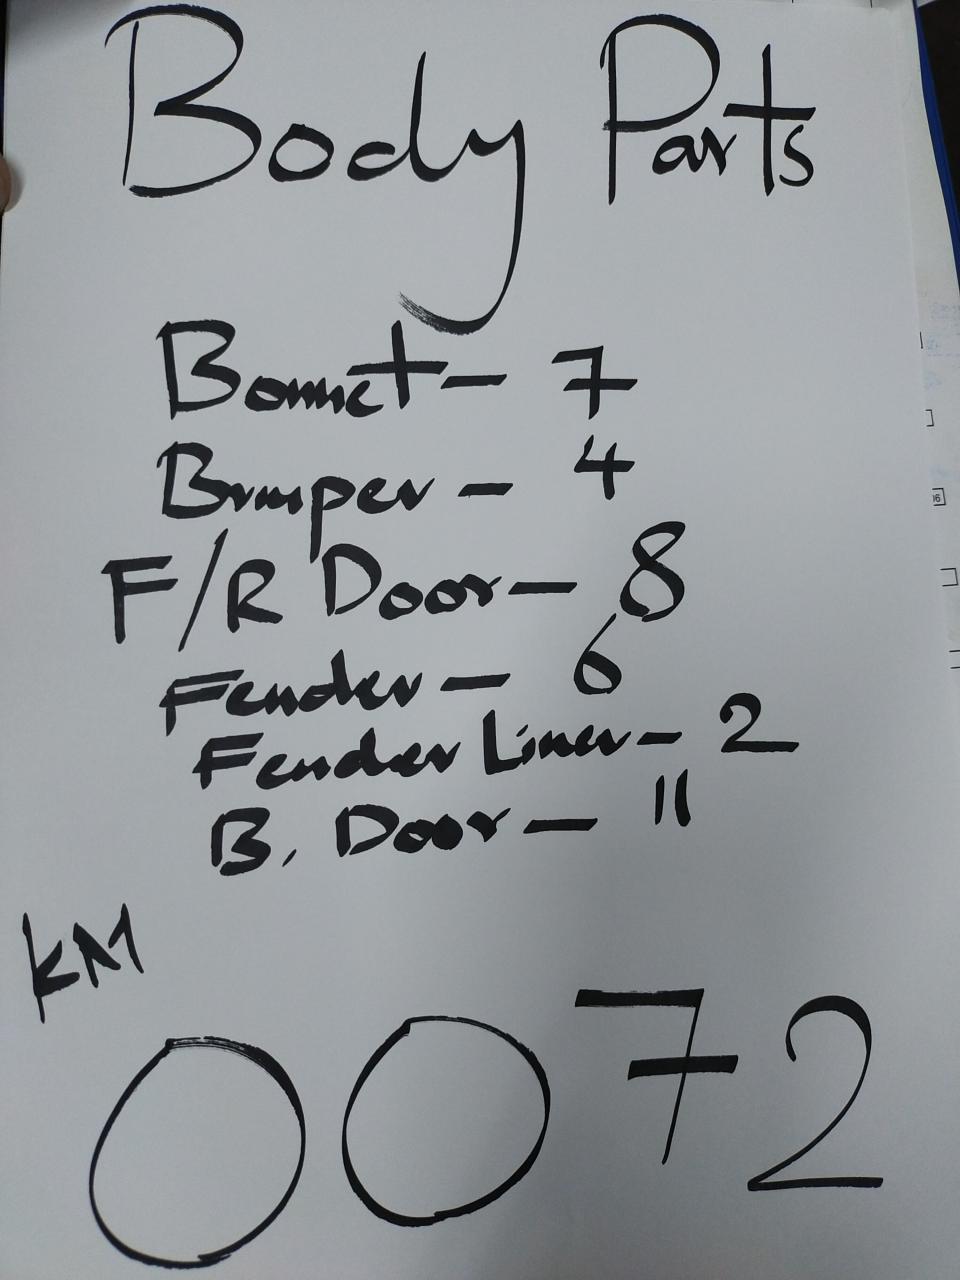 Body Parts
Bonnet - 7
Bumper - 4
F/R Door - 8
Fender - 6
Fender Liner - 2
B. Door - 11
KM
0072